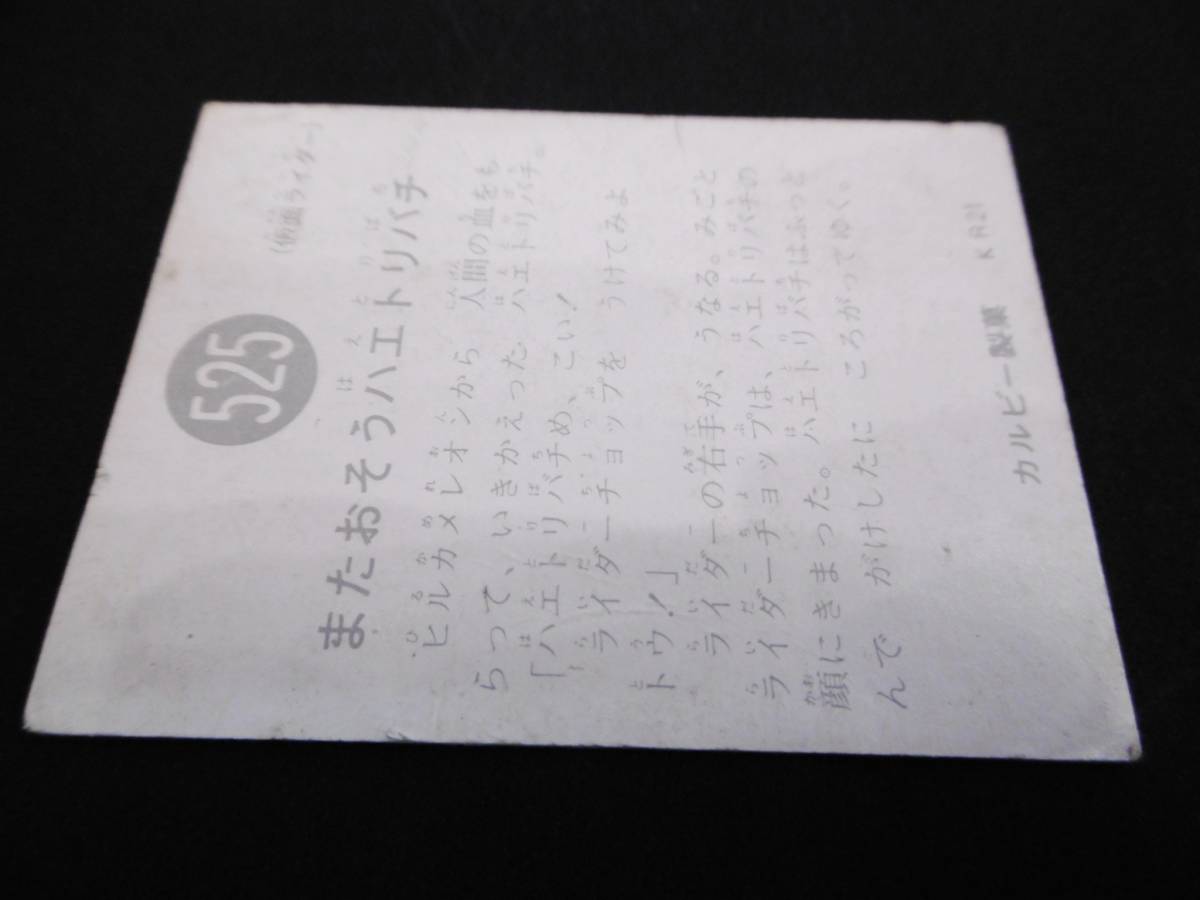 525
(仮面ライダー)
またおそうハエトリバチ
ヒルカメレオンから 人間の血をも
らって、いきかえった ハエトリバチ。
「ハエトリバチめ、こい!
ライダーチョップを うけてみよ
トウ!」
ライダーの右手が、うなる。みごと
ライダーチョップは、ハエトリバチの
顔にきまった。ハエトリバチはふっと
んで がけしたに ころがってゆく。
カルビー製菓 K R21